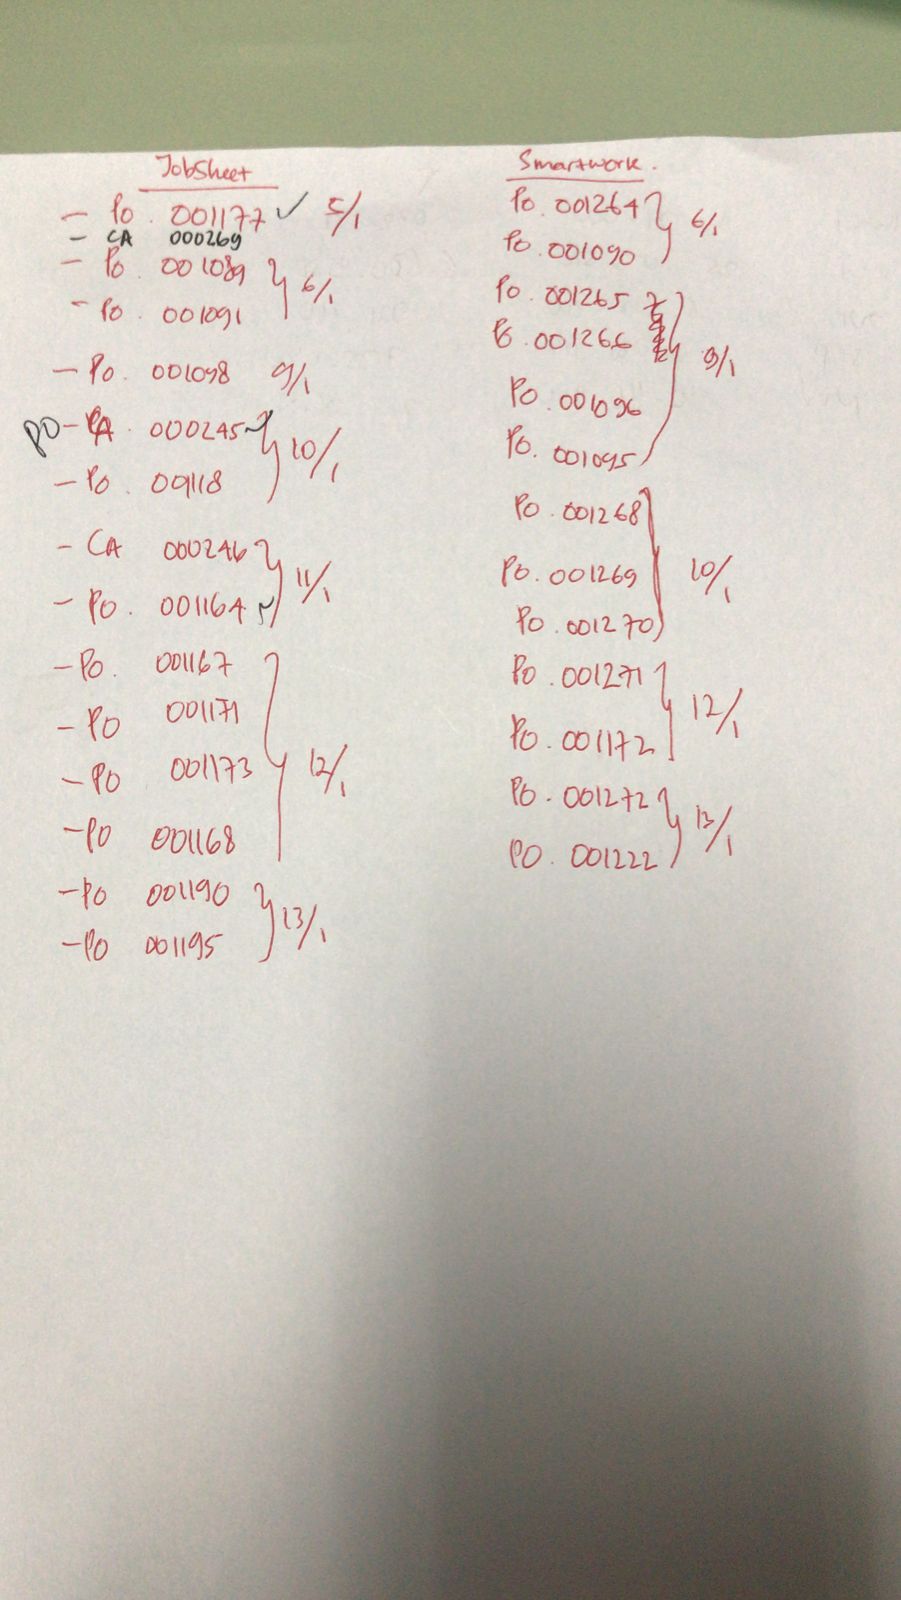 JobSheet
- PO. 001177 ✓ 5/1
- CA 000269
- PO. 001089
- PO. 001091
6/1
- PO. 001098 9/1
PO - CA. 000245 ✓
- PO. 001118
10/1
- CA 000246
- PO. 001164 ✓
11/1
- PO. 001167
- PO 001171
- PO 001173
- PO 001168
12/1
- PO 001190
- PO 001195
13/1
Smartwork.
PO. 001264
PO. 001090
6/1
PO. 001265
PO. 001266
PO. 001096
PO. 001095
9/1
PO. 001268
PO. 001269
PO. 001270
10/1
PO. 001271
PO. 001172
12/1
PO. 001272
PO. 001222
13/1